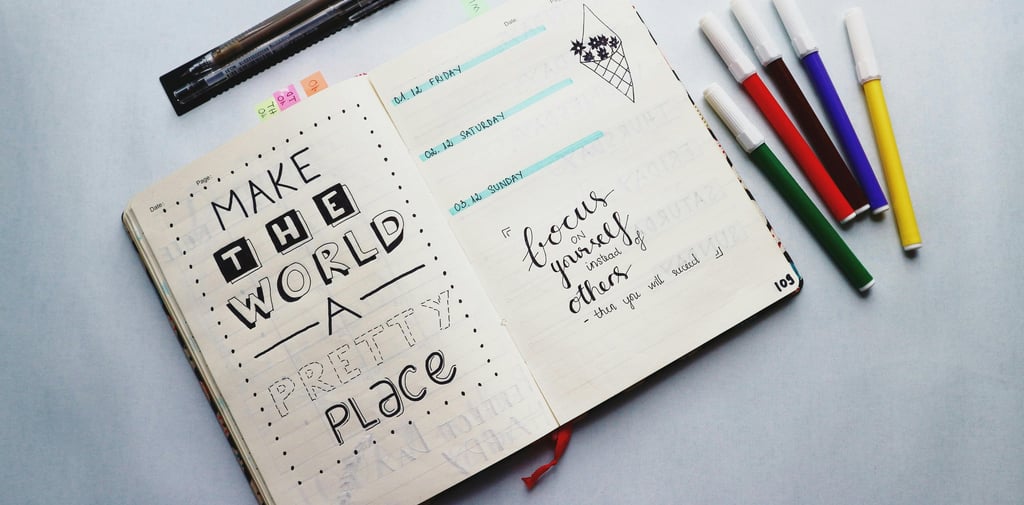 Date:
Page:
MAKE
THE
WORLD
A
PRETTY
PLACE
TH
Date:
01.12 FRIDAY
02.12 SATURDAY
03.12 SUNDAY
"focus
ON
yourself
instead of
others
- then you will succeed"
109